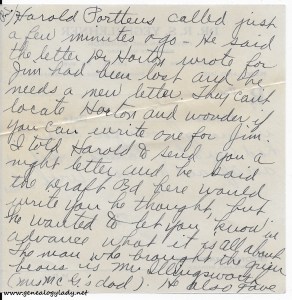 Harold Portteus called just
a few minutes ago - He said
the letter Dr Horton wrote for
Jim had been lost and he
needs a new letter. They can't
locate Horton and wonder if
you can write one for Jim.
I told Harold to send you a
night letter and he said
the Draft Bd here would
write you he thought, but
he wanted to let you know in
advance what it is all about.
The man who brought the
beans is Mr Illingsworth
(Mrs Mc G's dad). He also gave
www.genealogylady.net